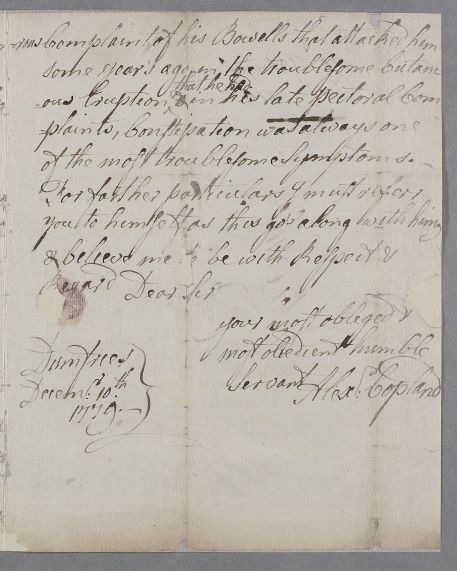 -rous Complaint of his Bowells that attacked him
some years ago, in the troublesome Cutane
that he had
-ous Eruption, & in his late Pectoral Com
plaints, Constipation was always one
of the most troublesome Symptoms.
For farther particulars I must refer
you to himself as this goes along with him,
& believe me to be with Respect &
Regard Dear Sir
your most obleged &
most obedient humble
Servant Alexr. Copland
Dumfries
Decemr. 10th
1779.